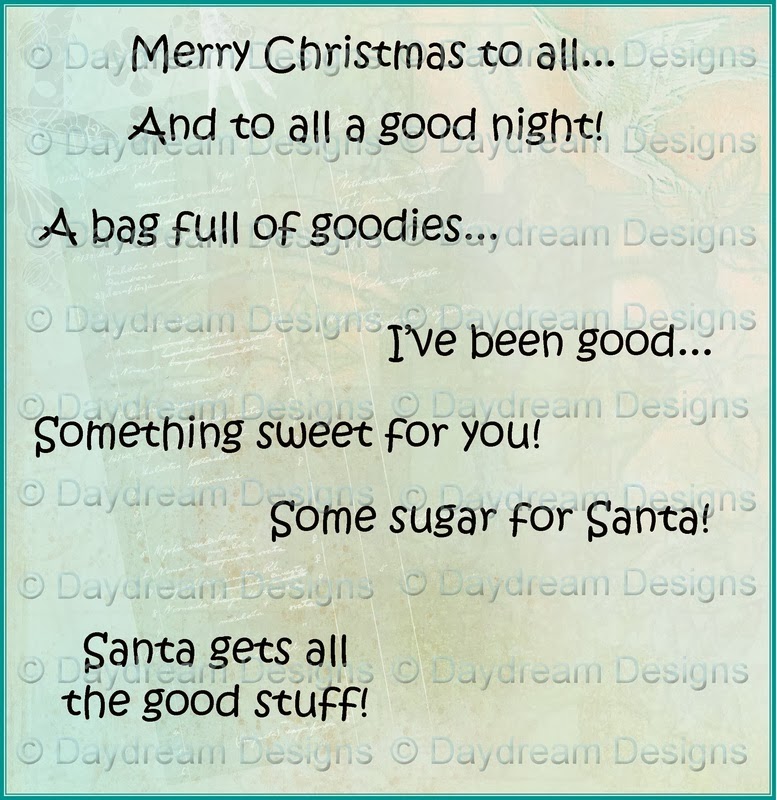 Merry Christmas to all...
And to all a good night!
A bag full of goodies...
I've been good...
Something sweet for you!
Some sugar for Santa!
Santa gets all
the good stuff!
© Daydream Designs © Daydream Designs
© Daydream Designs © Daydream Designs
© Daydream Designs © Daydream Designs
© Daydream Designs © Daydream Designs
© Daydream Designs © Daydream Designs
© Daydream Designs © Daydream Designs
© Daydream Designs © Daydream Designs
© Daydream Designs © Daydream Designs
© Daydream Designs © Daydream Designs